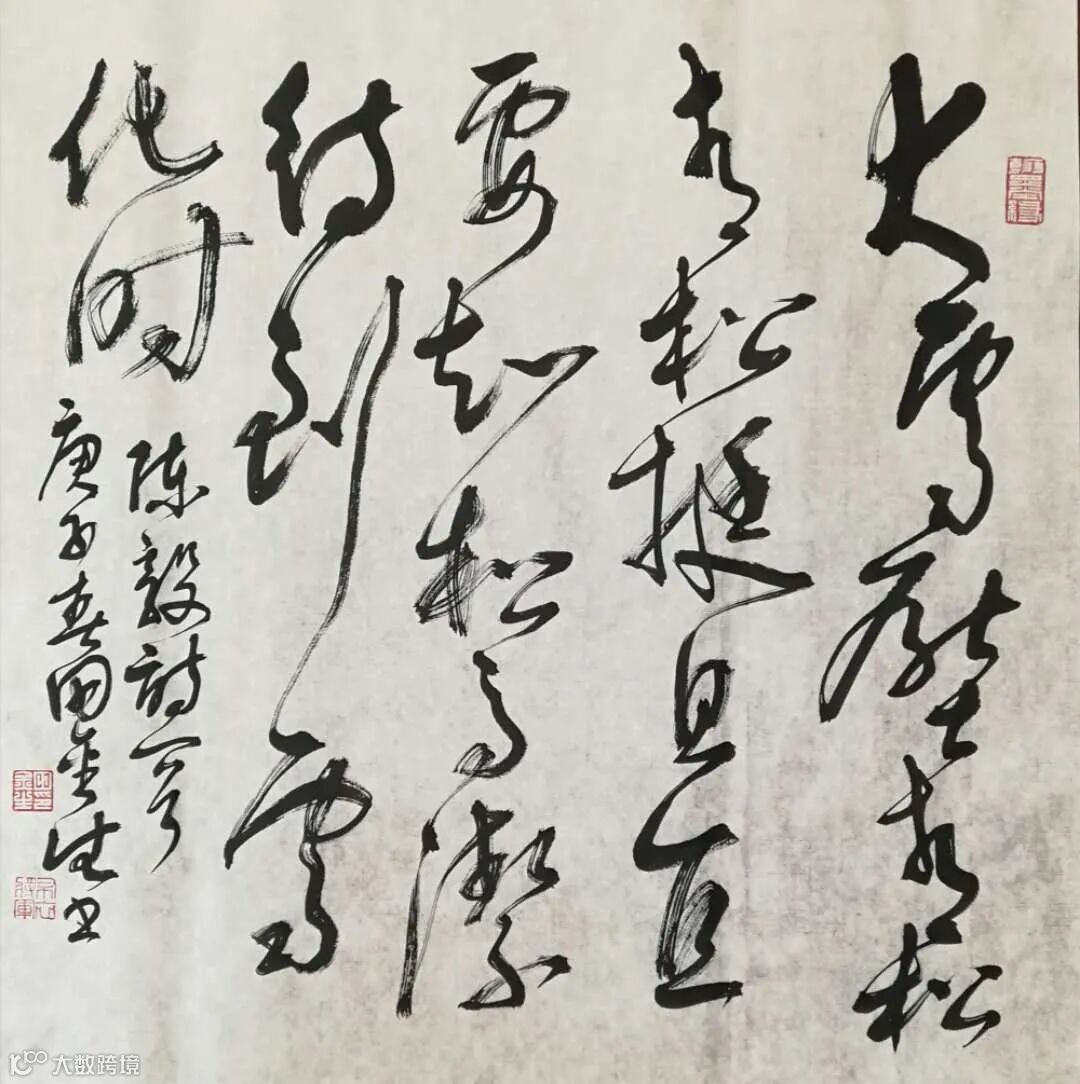 大雪压青松
青松挺且直
要知松高潔
待到雪
化时
陈毅詩一首
庚子春田金生书
大数跨境